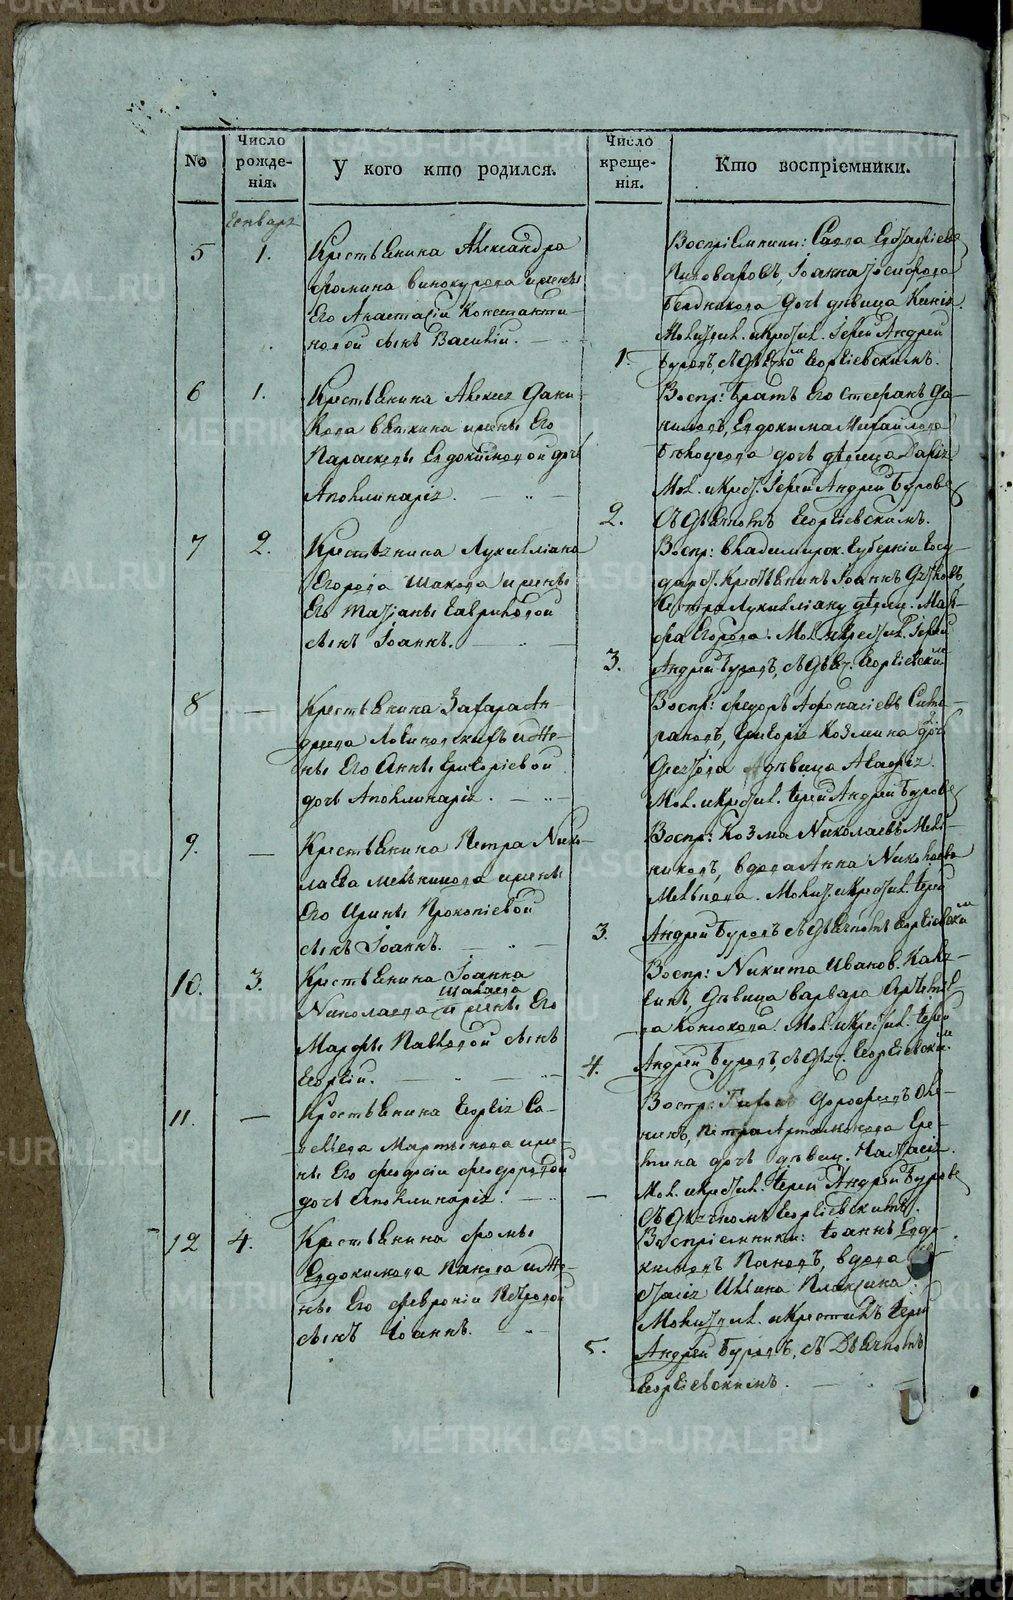 No
Число рожденія.
У кого кто родился.
Число крещенія.
Кто воспріемники.
Генварь
5
1.
Крестьянина Александра
Фомина Винокурова и жены
Его Анастасіи Константи-
новой сынъ Василій.
1.
Воспріемники: Савва
Пивоваровъ, Іоанна
дочь дѣвица
Молитв. и крестил. Іерей Андрей
Буровъ, съ дьячкомъ Георгіевскимъ.
6
1.
Крестьянина Алексея Дани-
лова Вяткина и жены Его
Параскевы Евдокимовой дочь
Апоклинарія.
2.
Воспр: братъ Его Стефанъ Да-
ниловъ, Евдокима Михайлова
дочь дѣвица Дарія
Мол. и крест. Іерей Андрей Буровъ
съ дьячкомъ Георгіевскимъ.
7
2.
Крестьянина Лукилліана
Егорова Шакова и жены
Его Татіаны Гавриловой
сынъ Іоаннъ.
3.
Воспр: Владимирск. Губерніи Госу-
дарст. крестьянинъ Іоаннъ
сестра Лукилліану дѣвица Мар-
фа Егорова. Мол. и крестил. Іерей
Андрей Буровъ, съ дьяч. Георгіевским
8
—
Крестьянина Захара Ан-
дреева и же-
ны Его Анны Григоріевой
дочь Апоклинарія.
Воспр: Федоръ Афонасіевъ
Григорія Козмина дочь
дѣвица
Мол. и крестил. Іерей Андрей Буровъ
9.
—
Крестьянина Петра Нико-
лаева Мельникова и жены
Его Ирины Прокопіевой
сынъ Іоаннъ.
3.
Воспр: Козма Николаевъ Мель-
никовъ, вдова Анна Николаева
Молит. и крестил. Іерей
Андрей Буровъ съ дьячкомъ Георгіевским
10.
3.
Крестьянина Іоанна
Николаева Шакаева и жены Его
Марфы Павловой сынъ
Георгій.
4.
Воспр: Никита Иванов.
дѣвица Варвара
Мол. и крестил. Іерей
Андрей Буровъ, съ дьяч. Георгіевским.
11.
—
Крестьянина Георгія Са-
вельева Мартынова и же-
ны Его Феодосіи Феодоровой
дочь Апоклинарія.
—
Воспр: Дорофеевъ
Петра Артамонова
дочь дѣвиц. Настасія.
Мол. и крестил. Іерей Андрей Буровъ
съ дьячкомъ Георгіевскимъ.
12
4.
Крестьянина Фомы
Евдокимова Панова и же-
ны Его Февроніи Петровой
сынъ Іоаннъ.
5.
Воспріемники: Іоаннъ Евдо-
кимовъ Пановъ, вдова
Ильина
Молитвил. и крестилъ Іерей
Андрей Буровъ, съ Дьячкомъ
Георгіевскимъ.
METRIKI.GASO-URAL.RU